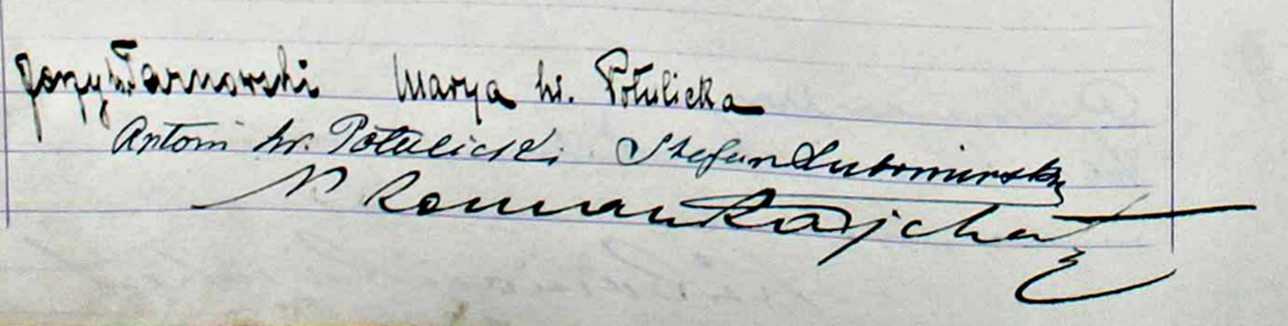 Jerzy hr. Tarnowski Marya hr. Potulicka
Antoni hr. Potulicki Stefan Lubomirski
X Roman Rajchert